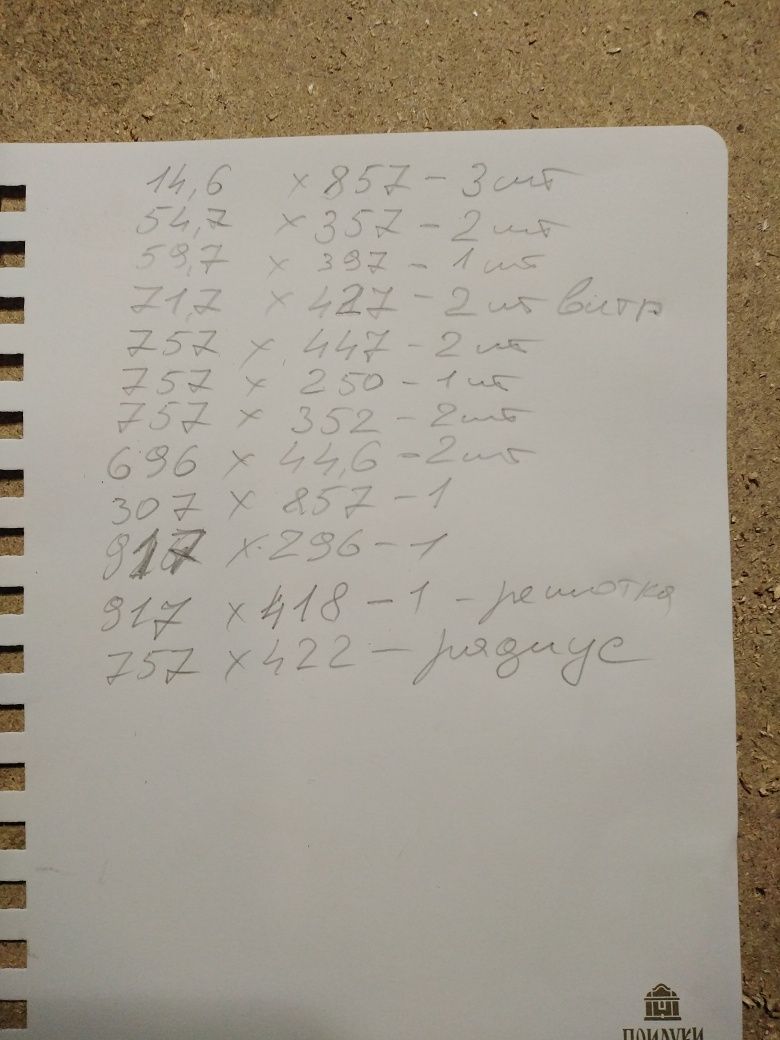 14,6 × 857 – 3 шт
54,7 × 357 – 2 шт
59,7 × 397 – 1 шт
71,7 × 427 – 2 шт витр
757 × 447 – 2 шт
757 × 250 – 1 шт
757 × 352 – 2 шт
696 × 44,6 – 2 шт
307 × 857 – 1
917 × 296 – 1
917 × 418 – 1 – решотка
757 × 422 – радиус
ПРИЛУКИ